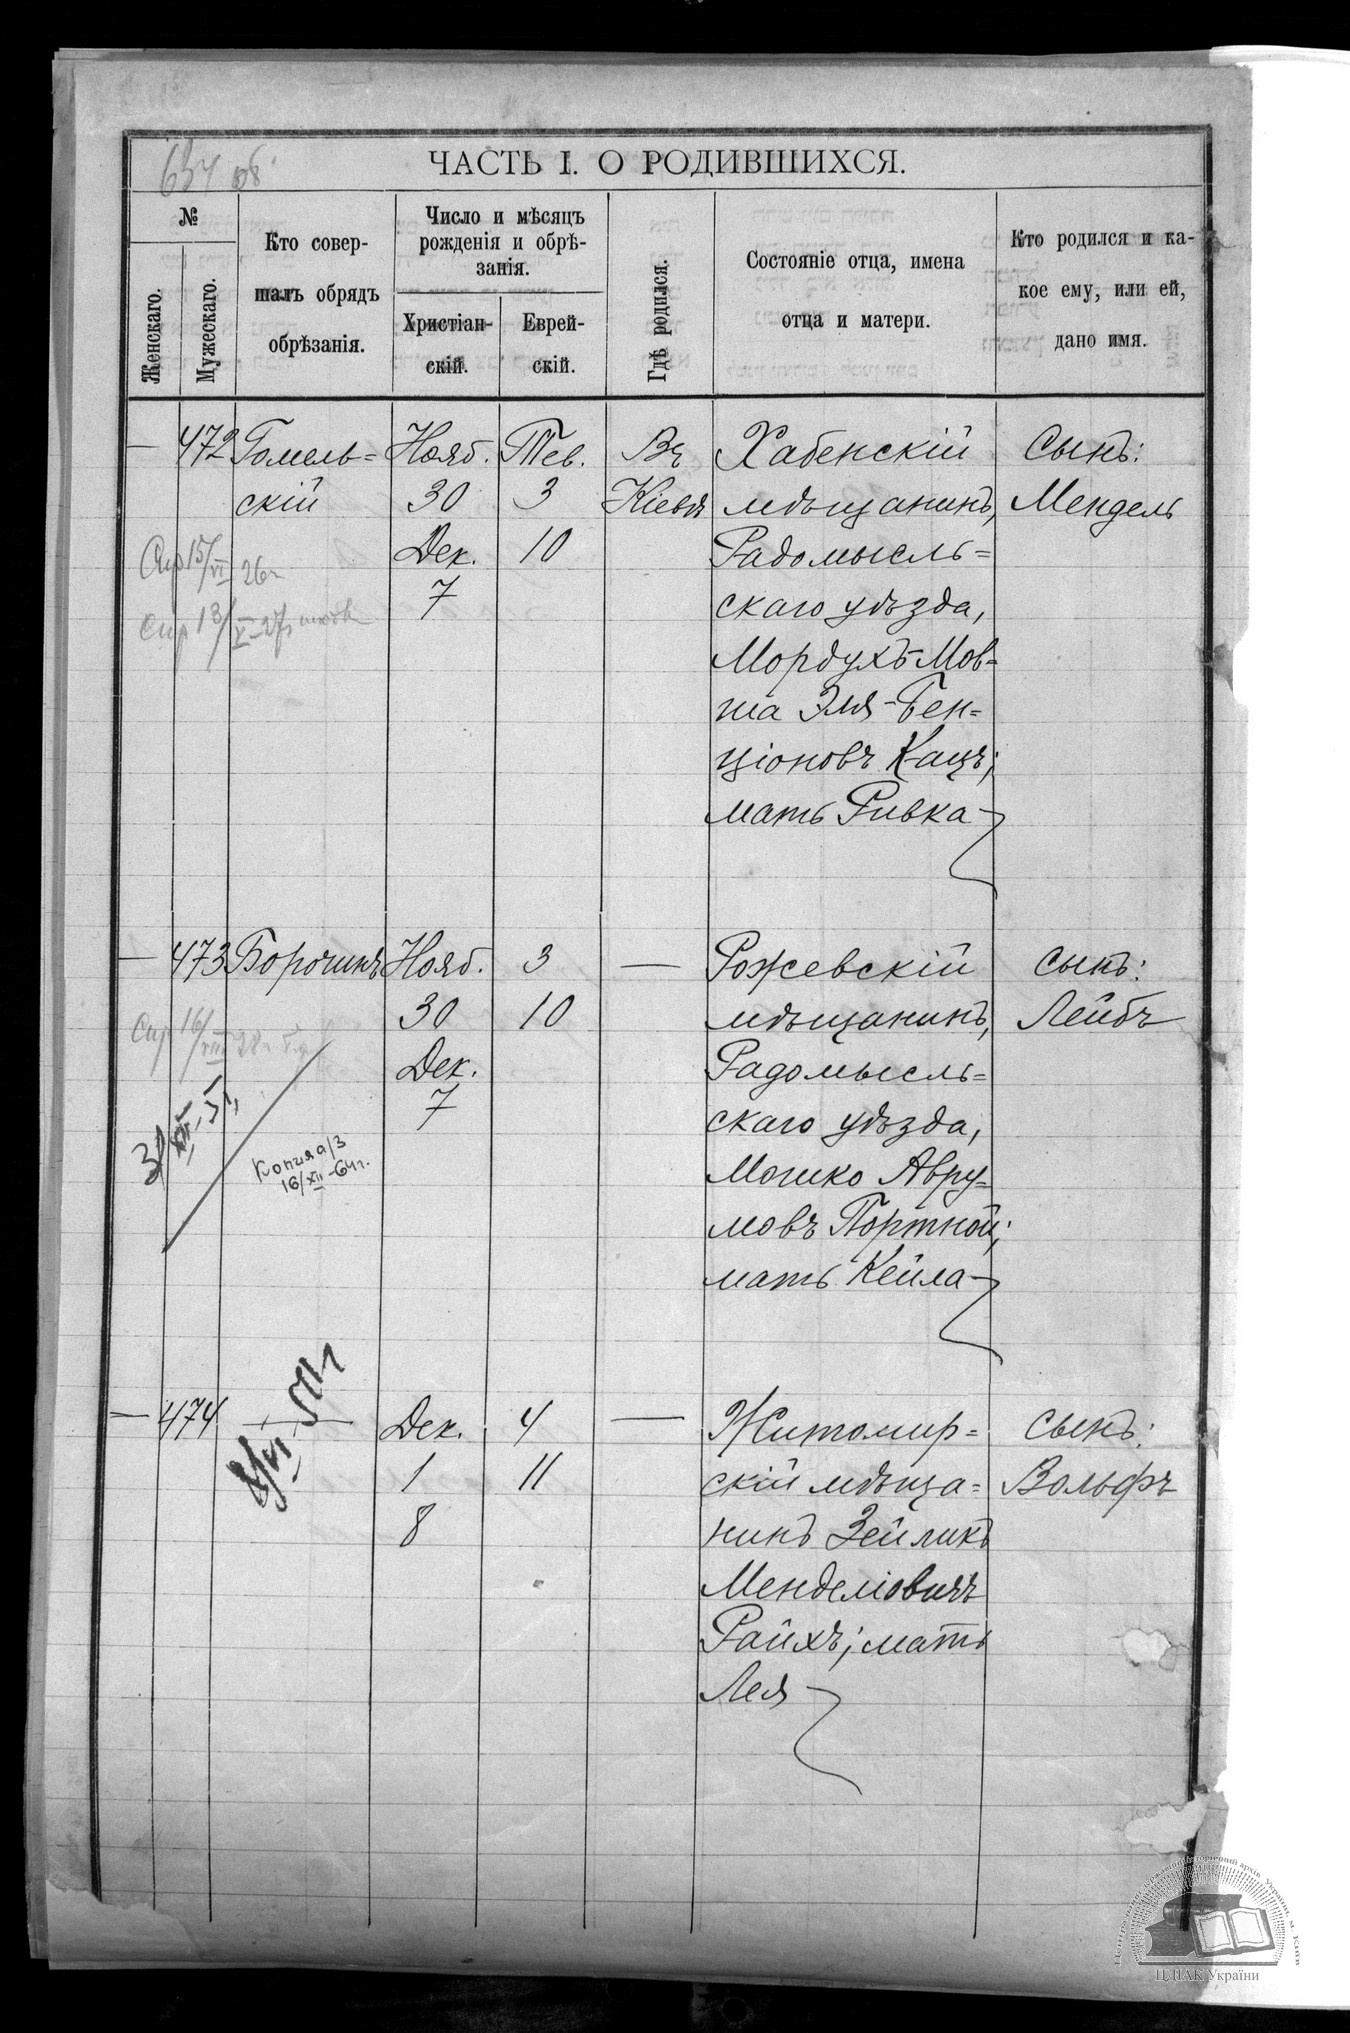 654 об.
ЧАСТЬ I. О РОДИВШИХСЯ.
№
Женскаго.
Мужескаго.
Кто совер-
шалъ обрядъ
обрѣзанія.
Число и мѣсяцъ
рожденія и обрѣ-
занія.
Христіан-
скій.
Еврей-
скій.
Гдѣ родился.
Состояніе отца, имена
отца и матери.
Кто родился и ка-
кое ему, или ей,
дано имя.
— 472 Гомель=
скій
Нояб.
30
Дек.
7
Тев.
3
10
Въ
Кіевѣ
Хабенскій
мѣщанинъ,
Радомысль=
скаго уѣзда,
Мордухъ-Мов-
ша Эля-Бен=
ціоновъ Кацъ;
мать Ривка
Сынъ:
Мендель
15/VI 26г
13/X-27г
— 473
Нояб.
30
Дек.
7
3
10
—
Рожевскій
мѣщанинъ,
Радомысль=
скаго уѣзда,
Мошко Авру=
мовъ Портной;
мать Кейла
сынъ:
Лейбъ
Копия а/з
16/XII-64г.
— 474 —
Дек.
1
8
4
11
—
Житомир=
скій мѣща=
нинъ Зейликъ
Менделіовичъ
Райхъ; мать
Лея
сынъ:
Вольфъ
ЦДІАК України